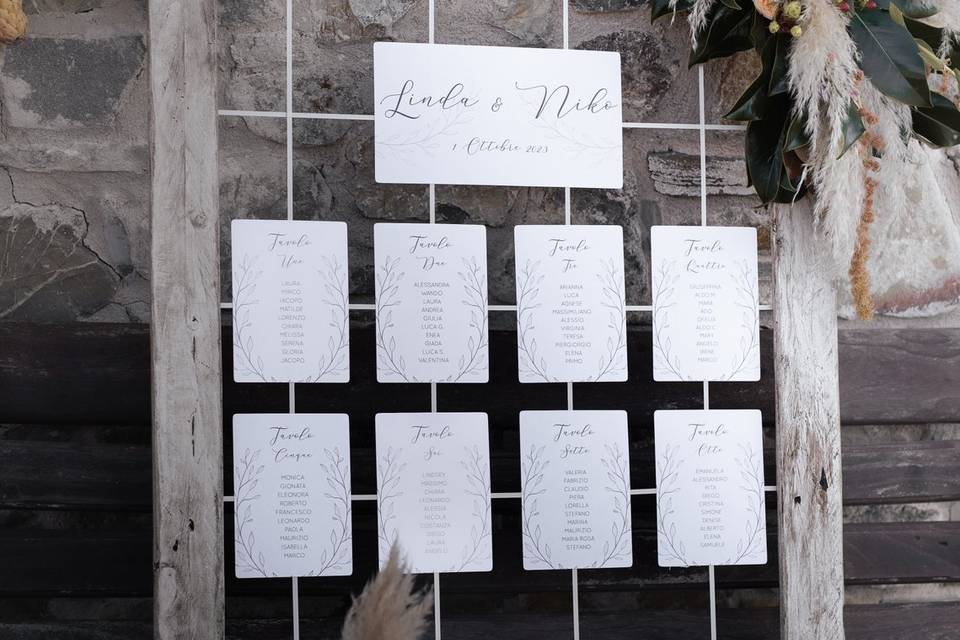 Linda & Niko
1 Ottobre 2023
Tavolo
Uno
LAURA
MIRCO
JACOPO
MATILDE
LORENZO
CHIARA
MELISSA
SERENA
GLORIA
JACOPO
Tavolo
Due
ALESSANDRA
WANDO
LAURA
ANDREA
GIULIA
LUCA G.
ENEA
GIADA
LUCA S.
VALENTINA
Tavolo
Tre
ARIANNA
LUCA
AGNESE
MASSIMILIANO
ALESSIO
VIRGINIA
TERESA
PIERGIORGIO
ELENA
PRIMO
Tavolo
Quattro
GIUSEPPINA
ALDO M.
MARA
ADO
OFELIA
ALDO C.
MARY
ANGELO
IRENE
MARCO
Tavolo
Cinque
MONICA
GIONATA
ELEONORA
ROBERTO
FRANCESCO
LEONARDO
PAOLA
MAURIZIO
ISABELLA
MARCO
Tavolo
Sei
LINDSEY
MASSIMO
CHIARA
LEONARDO
ALESSIA
NICOLA
COSTANZA
DIEGO
LAURA
ANGELO
Tavolo
Sette
VALERIA
FABRIZIO
CLAUDIO
PIERA
LORELLA
STEFANO
MARINA
MAURIZIO
MARIA ROSA
STEFANO
Tavolo
Otto
EMANUELA
ALESSANDRO
RITA
DIEGO
CRISTINA
SIMONE
DENISE
ALBERTO
ELENA
SAMUELE